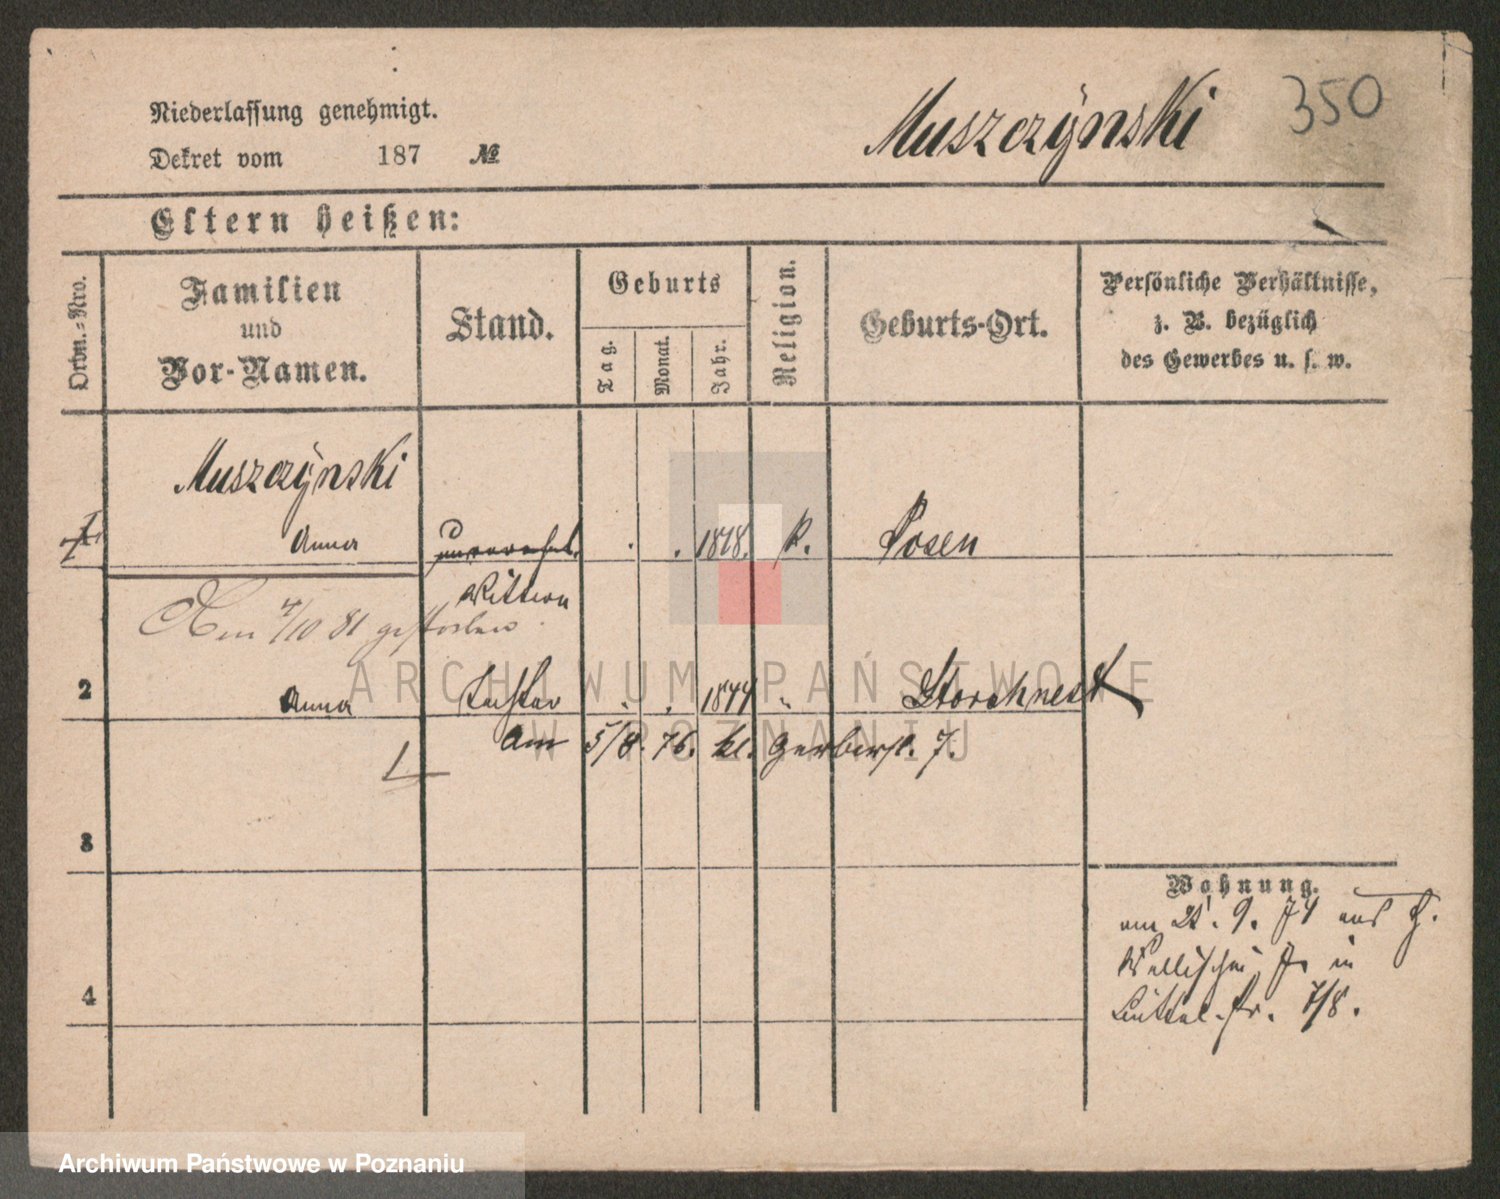 Niederlassung genehmigt.
Dekret vom 187 №
Muszczÿnski
350
Eltern heißen:
Ordn.=Nro.
Familien
und
Vor-Namen.
Stand.
Geburts
Tag.
Monat.
Jahr.
Religion.
Geburts-Ort.
Persönliche Verhältnisse,
z. B. bezüglich
des Gewerbes u. s. w.
Muszczÿnski
1 Anna unverehel. 1818. K. Posen
Wittwe
Am 4/10 81 gestorben
2 Anna Tochter 1844 " Storchnest
Am 5/8. 76. kl. Gerberst. 7.
3
4
Wohnung.
am 9. 74 aus
Wallischei in
7/8.
ARCHIWUM PAŃSTWOWE
W POZNANIU
Archiwum Państwowe w Poznaniu